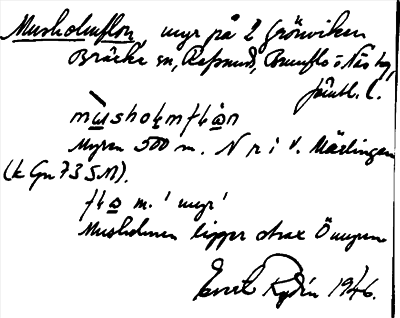 Musholmflon, myr på l Grönviken
Bräcke sn, Refsund, Brunflo o Näs tg,
Jämtl. l.
Myren 500 m. N r i V. Märlingen
(k Gn 73 SM).
flo m. 'myr'
Musholmen ligger strax Ö myren
Evert Rydén 1946.